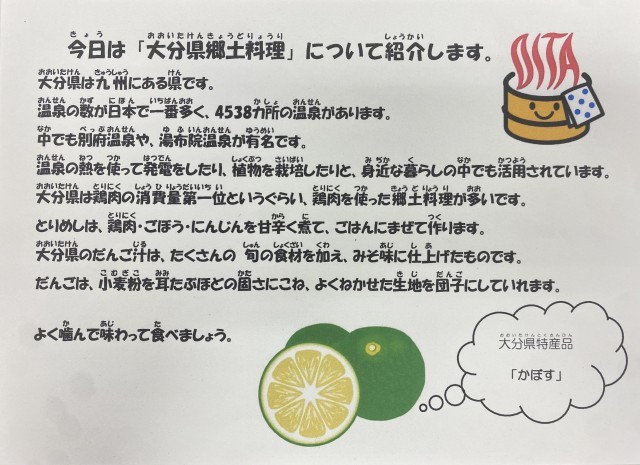 今日は「大分県郷土料理」について紹介します。
OITA
大分県は九州にある県です。
温泉の数が日本で一番多く、4538カ所の温泉があります。
中でも別府温泉や、湯布院温泉が有名です。
温泉の熱を使って発電をしたり、植物を栽培したりと、身近な暮らしの中でも活用されています。
大分県は鶏肉の消費量第一位というぐらい、鶏肉を使った郷土料理が多いです。
とりめしは、鶏肉・ごぼう・にんじんを甘辛く煮て、ごはんにまぜて作ります。
大分県のだんご汁は、たくさんの 旬の食材を加え、みそ味に仕上げたものです。
だんごは、小麦粉を耳たぶほどの固さにこね、よくねかせた生地を団子にしていれます。
よく噛んで味わって食べましょう。
大分県特産品
「かぼす」